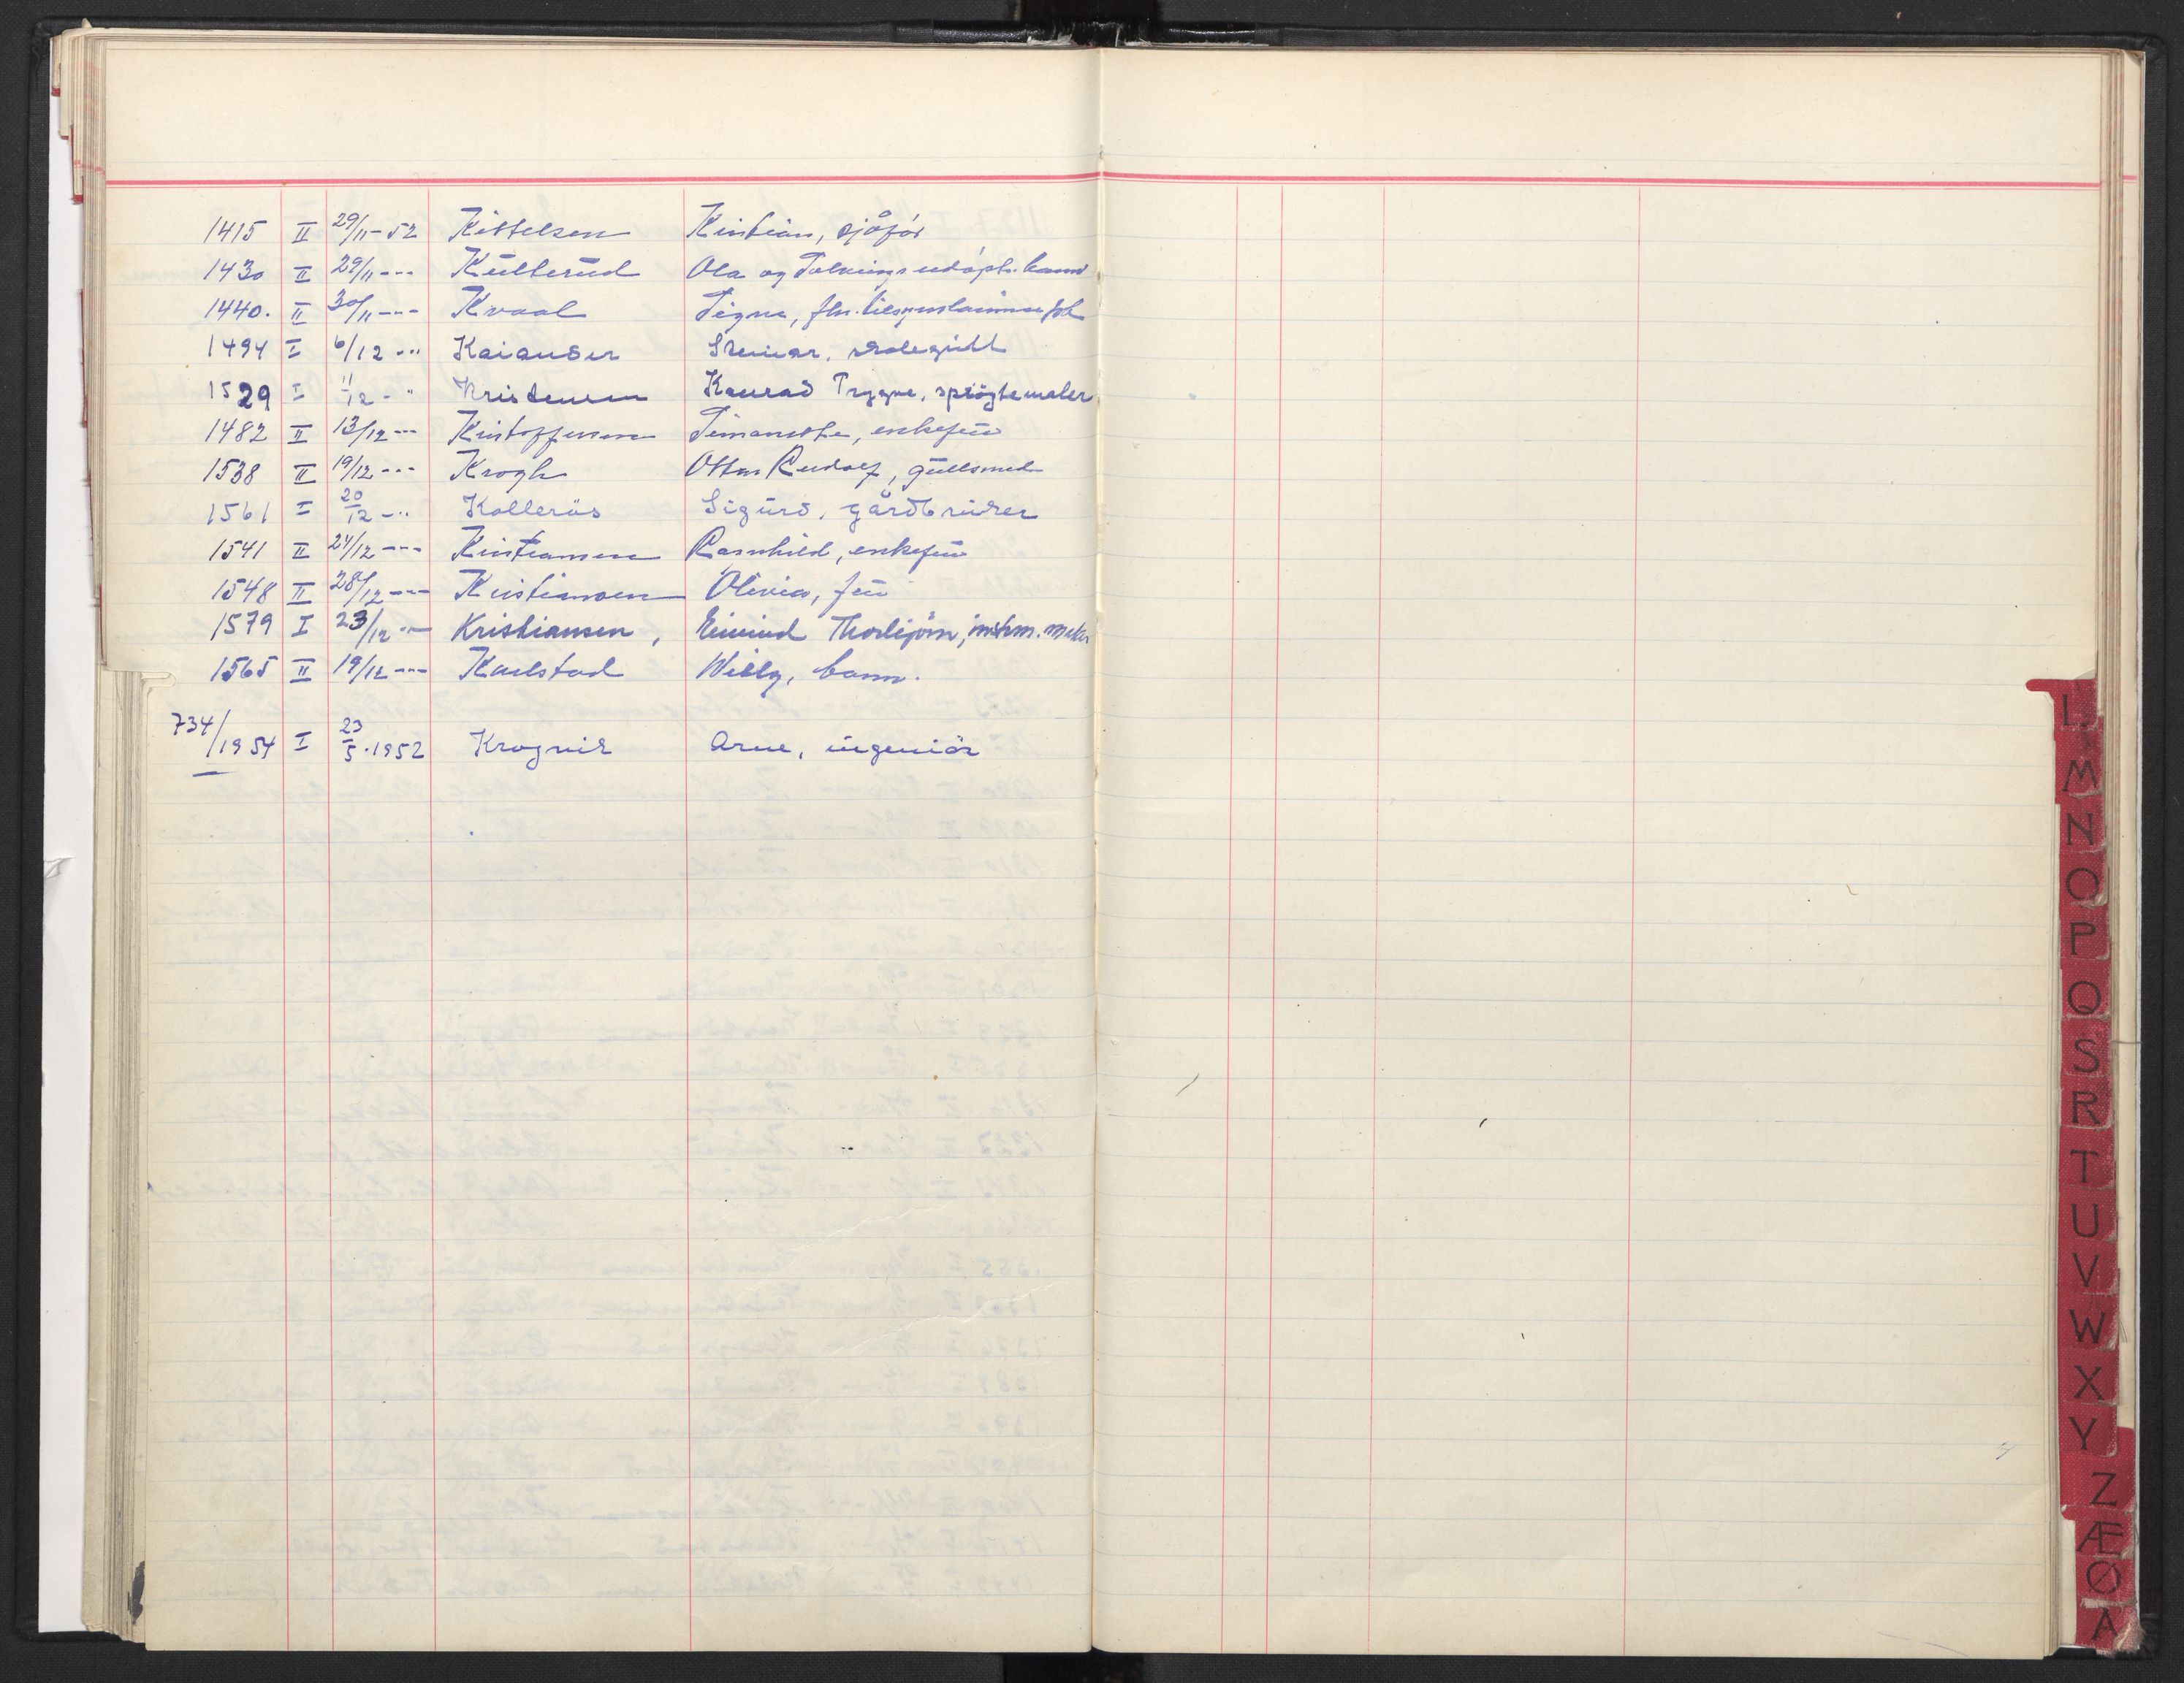 1415 II 29/11-52 Kittelsen Kristian, sjåfør
1430 II 29/11 --- Kulterud Ola og Solveigs udøpte barn
1440. II 30/11 --- Kvaal Signe
1494 I 6/12 -"- Kaiander Steinar, skolegutt
1529 I 11/12 - " Kristensen Konrad Trygve, sprøytemaler
1482 II 13/12 --- Kristoffersen enkefru
1538 II 19/12 --- Krogh Ottar Rudolf, gullsmed
1561 I 20/12 -" Kollerös Sigurd, gårdbruker
1541 II 24/12 --- Kristiansen Ragnhild, enkefru
1548 II 28/12 --- Kristiansen Olivia, fru
1579 I 23/12 -- Kristiansen, Eivind Thorbjörn, instrm. maker
1565 II 19/12 --- Karlstad Willy, barn.
734/1954 I 23/5.1952 Krogvik Arne, ingeniör
L
M
N
O
P
Q
S
R
T
U
V
W
X
Y
Z
Æ
Ø
A